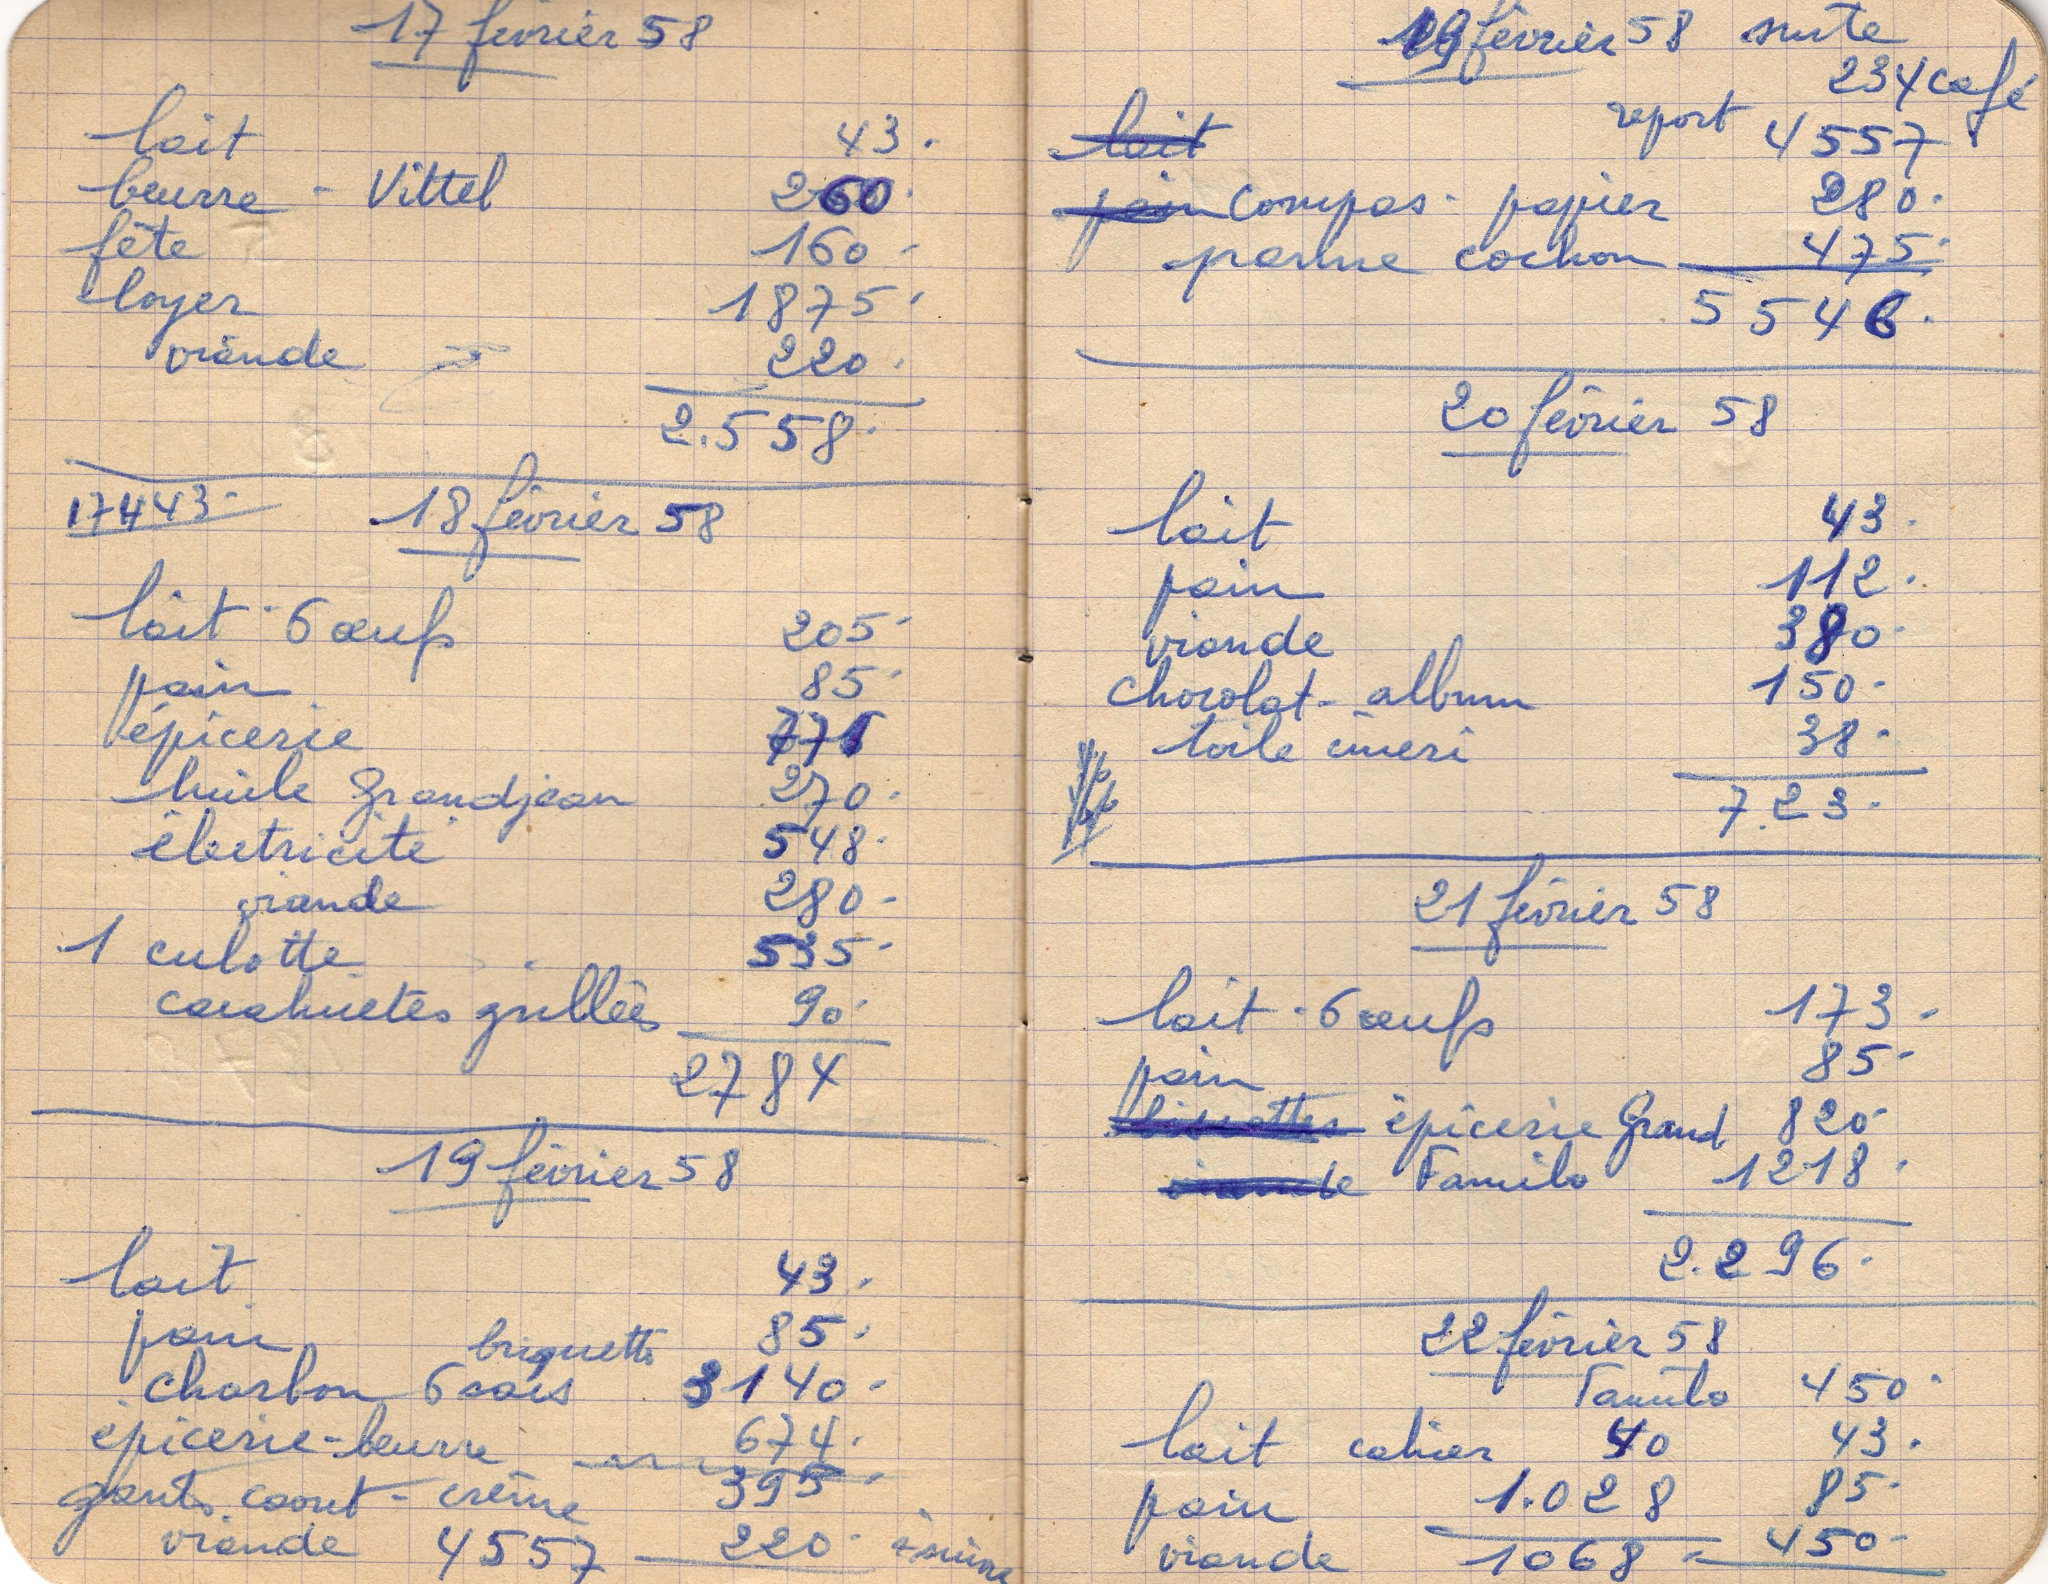 17 février 58
lait 43.
beurre - Vittel 260.
fête 160.
loyer 1875.
viande 220.
2.558.
17443.
18 février 58
lait - 6 œufs 205.
pain 85.
épicerie 771
huile Grandjean 270.
électricité 548.
viande 280.
1 culotte 535.
cacahuètes grillées 90.
2784
19 février 58
lait 43.
pain 85.
briquetts
charbon 6 sacs 3140.
épicerie-beurre 674.
gants caout - crème 395.
viande 4557 220. à suivre
19 février 58 suite
234 café
lait report 4557
pain compas - papier 280.
panne cochon 475.
5546.
20 février 58
lait 43.
pain 112.
viande 380.
chocolat - album 150.
toile émeri 38.
723.
21 février 58
lait - 6 œufs 173.
pain 85.
biscottes épicerie Grand 820
viande Familo 1218.
2.296.
22 février 58
Familo 450.
lait cahier 40 43.
pain 1.028 85.
viande 1068 450.